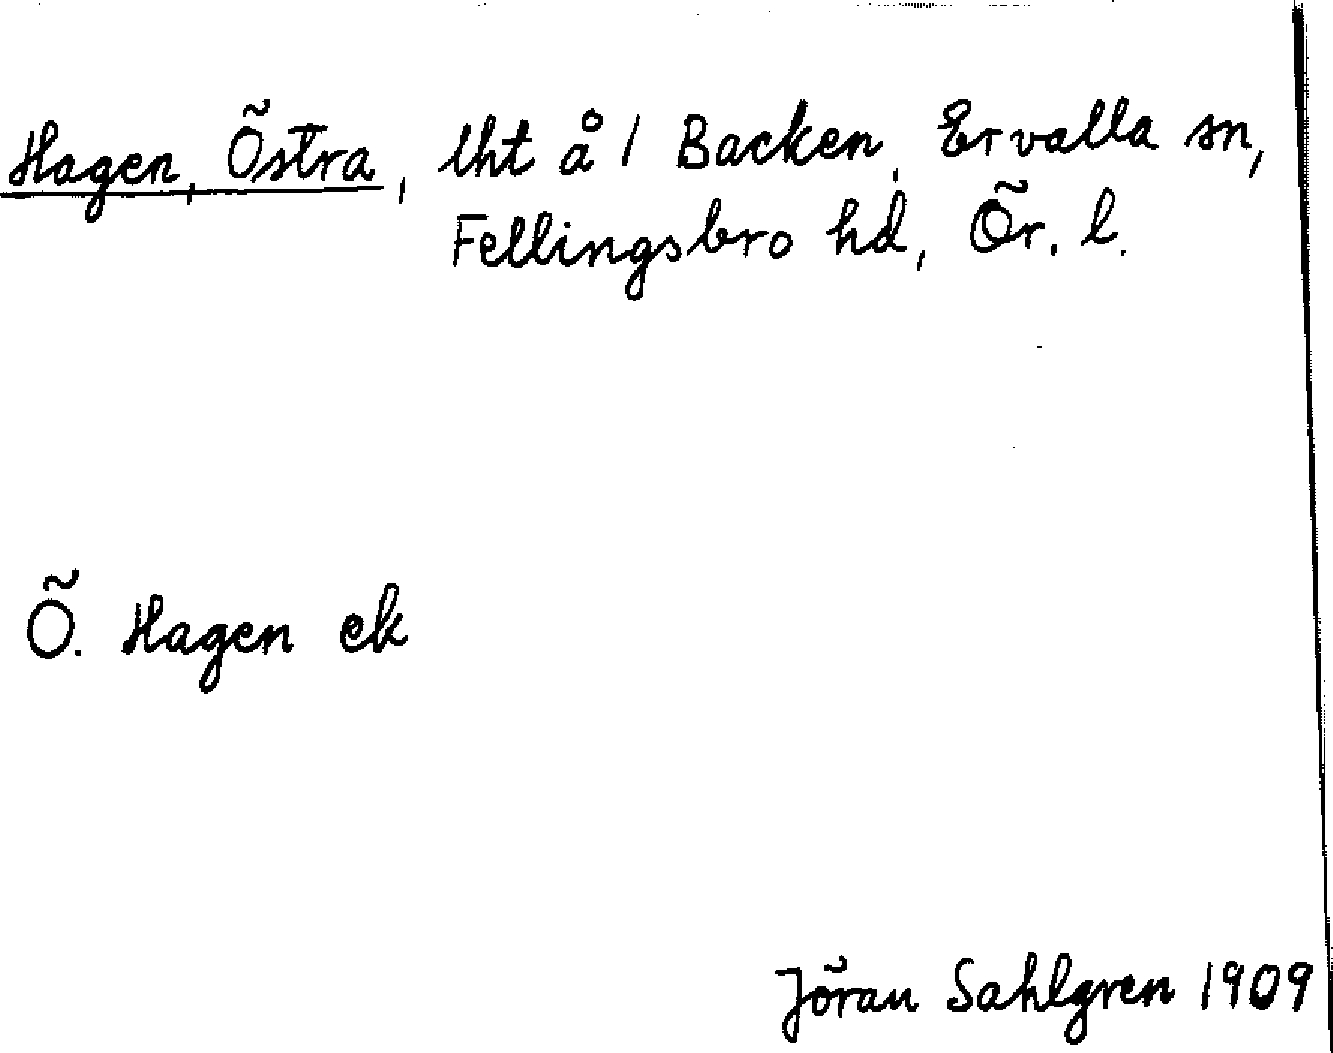 Hagen, Östra, lht å 1 Backen, Ervalla sn,
Fellingsbro hd, Ör. l.
Ö. Hagen ek
Jöran Sahlgren 1909